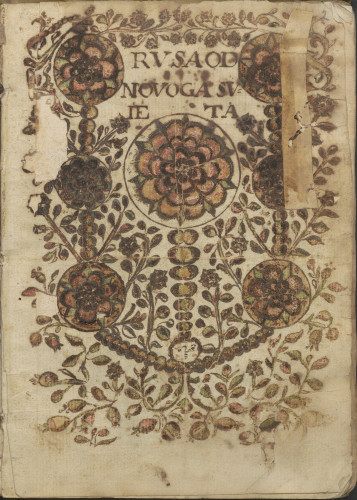 RVSAOD
NOVOGA SV-
IE TA